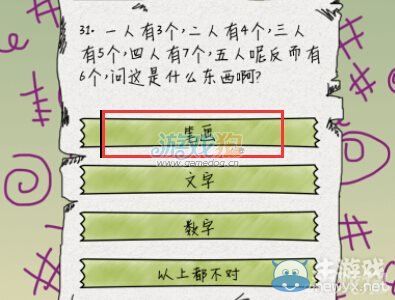 31. 一人有3个,二人有4个,三人
有5个,四人有7个,五人呢反而有
6个,问这是什么东西啊?
笔画
游戏狗
www.gamedog.cn
文字
数字
以上都不对
牛游戏